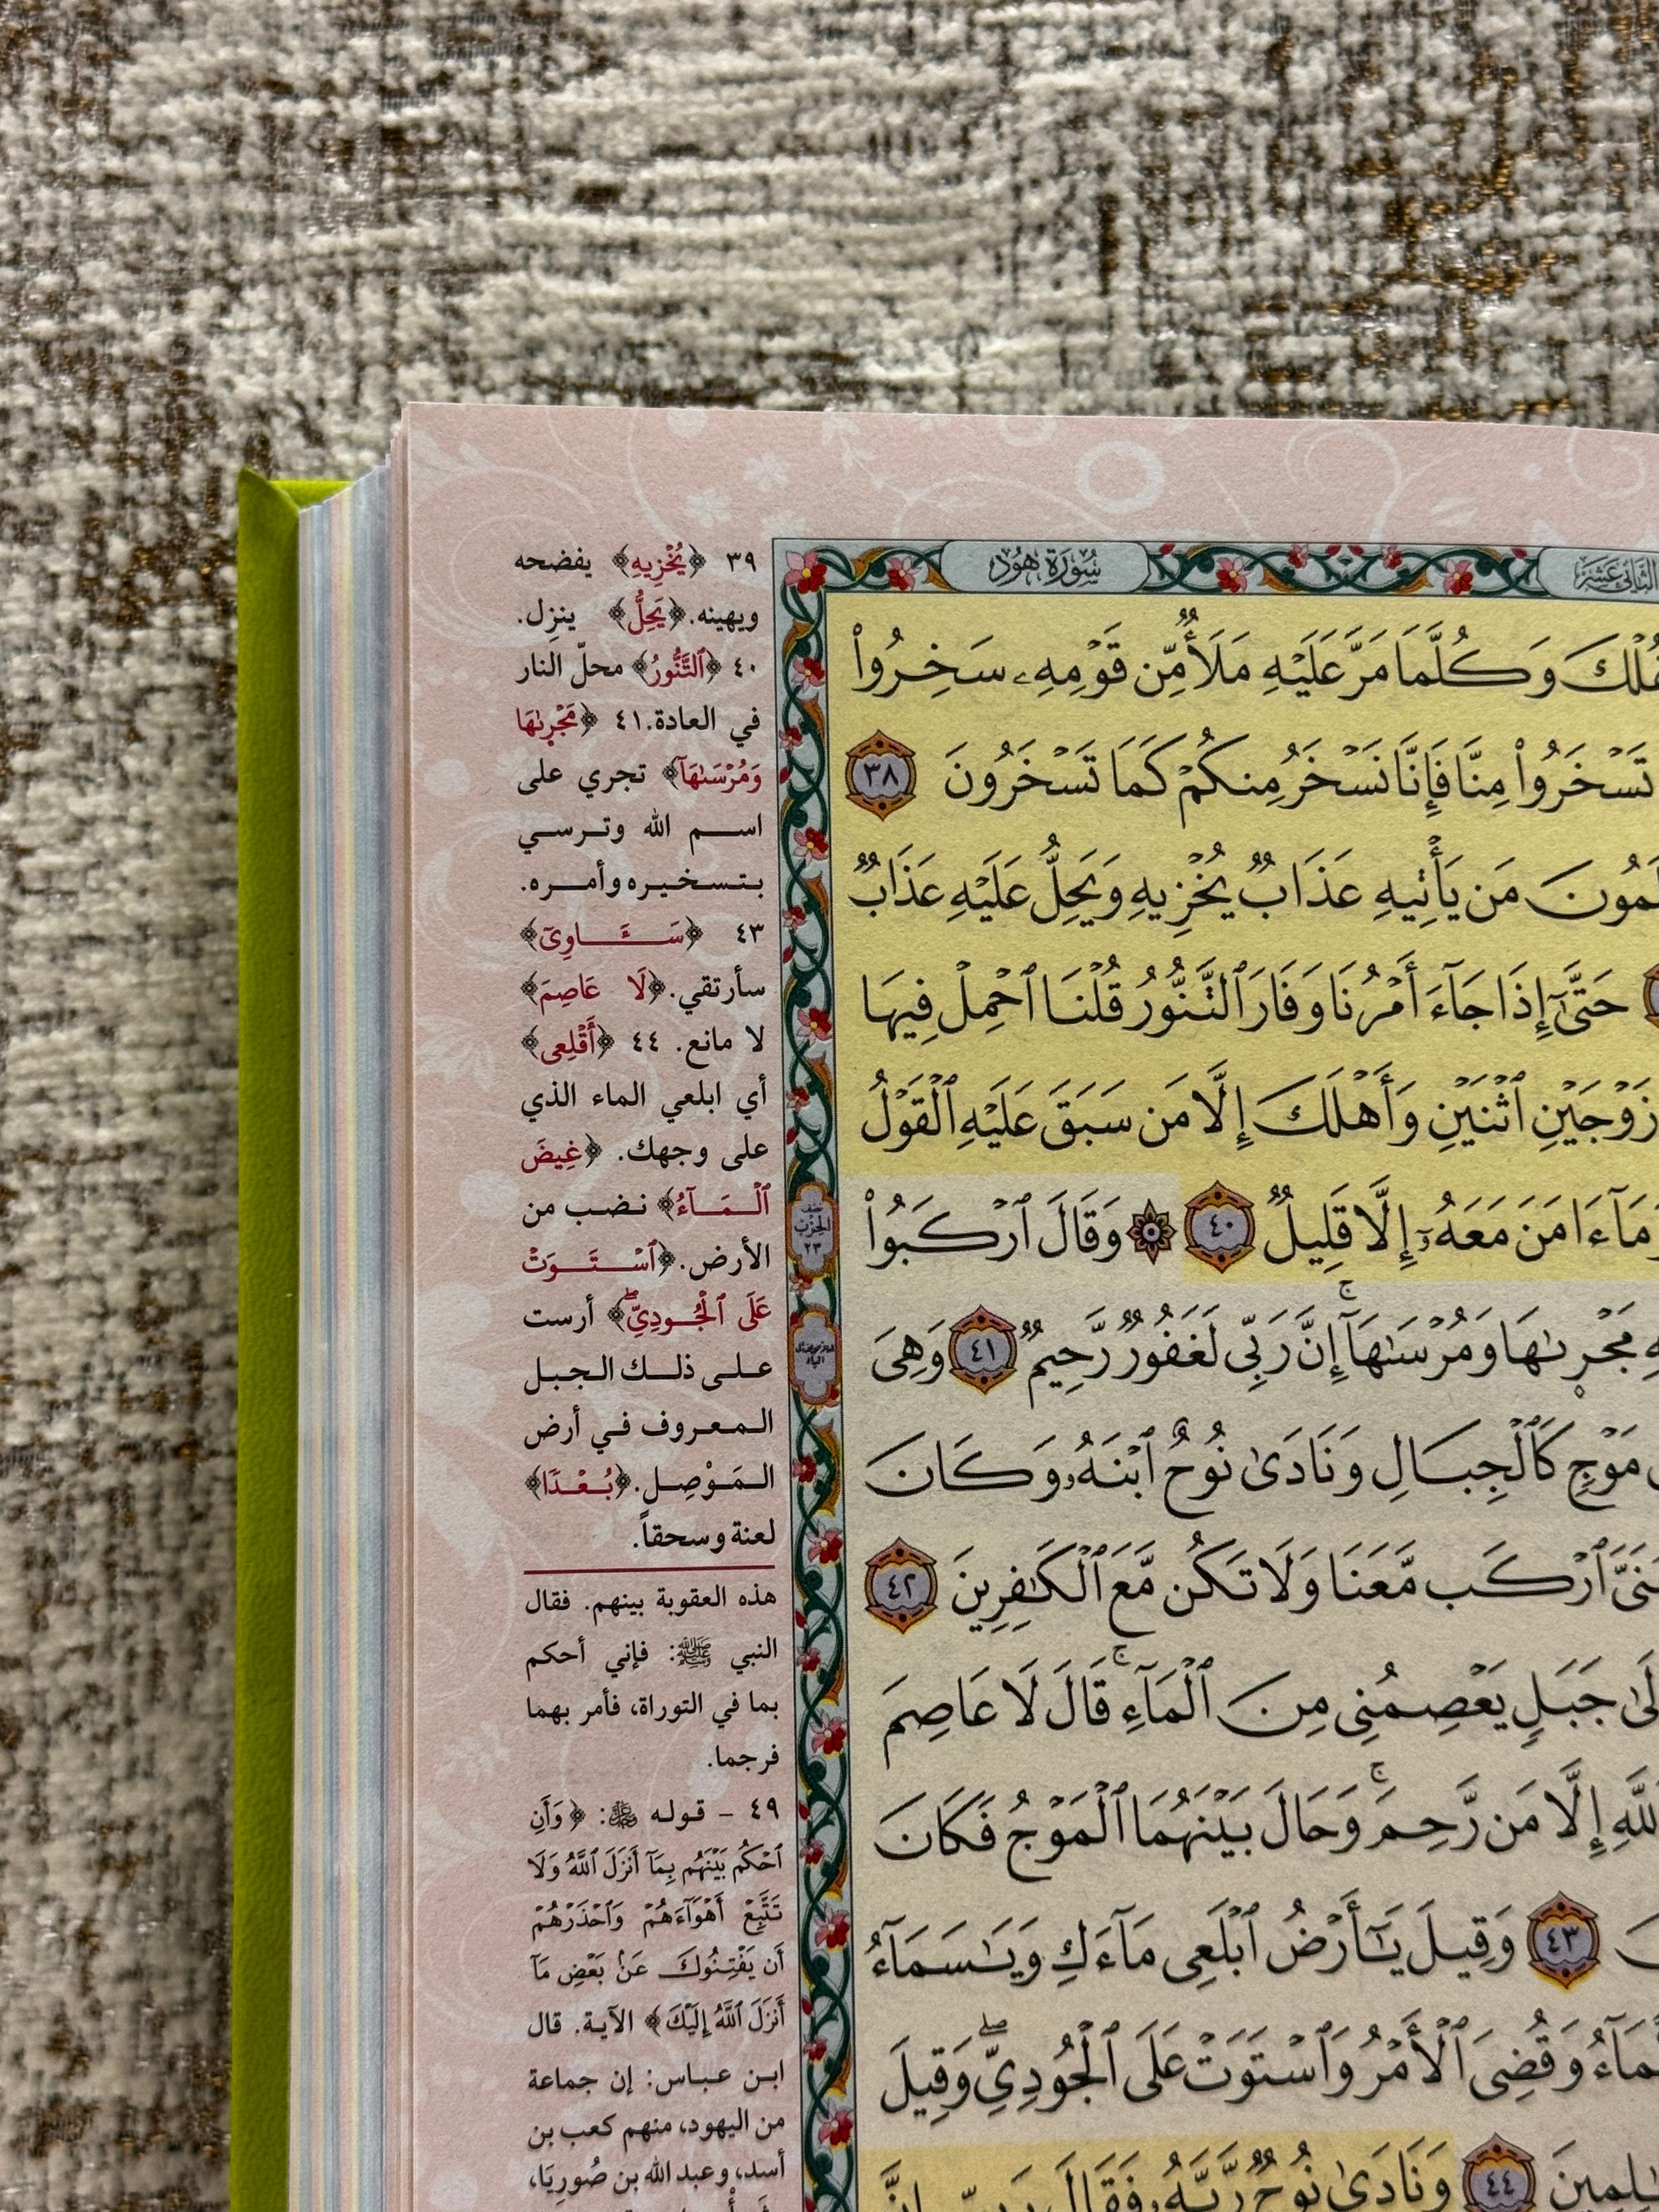 سُورَةُ هُودٍ
وَكُلَّمَا مَرَّ عَلَيْهِ مَلَأٌ مِّن قَوْمِهِۦ سَخِرُوا۟
تَسْخَرُوا۟ مِنَّا فَإِنَّا نَسْخَرُ مِنكُمْ كَمَا تَسْخَرُونَ ٣٨
مَن يَأْتِيهِ عَذَابٌ يُخْزِيهِ وَيَحِلُّ عَلَيْهِ عَذَابٌ
حَتَّىٰٓ إِذَا جَآءَ أَمْرُنَا وَفَارَ ٱلتَّنُّورُ قُلْنَا ٱحْمِلْ فِيهَا
زَوْجَيْنِ ٱثْنَيْنِ وَأَهْلَكَ إِلَّا مَن سَبَقَ عَلَيْهِ ٱلْقَوْلُ
وَمَآ ءَامَنَ مَعَهُۥٓ إِلَّا قَلِيلٌ ٤٠ ۞ وَقَالَ ٱرْكَبُوا۟
مَجْر۪ىٰهَا وَمُرْسَىٰهَآ ۚ إِنَّ رَبِّى لَغَفُورٌ رَّحِيمٌ ٤١ وَهِىَ
مَوْجٍ كَٱلْجِبَالِ وَنَادَىٰ نُوحٌ ٱبْنَهُۥ وَكَانَ
ٱرْكَب مَّعَنَا وَلَا تَكُن مَّعَ ٱلْكَـٰفِرِينَ ٤٢
جَبَلٍ يَعْصِمُنِى مِنَ ٱلْمَآءِ ۚ قَالَ لَا عَاصِمَ
إِلَّا مَن رَّحِمَ ۚ وَحَالَ بَيْنَهُمَا ٱلْمَوْجُ فَكَانَ
٤٣ وَقِيلَ يَـٰٓأَرْضُ ٱبْلَعِى مَآءَكِ وَيَـٰسَمَآءُ
وَقُضِىَ ٱلْأَمْرُ وَٱسْتَوَتْ عَلَى ٱلْجُودِىِّ ۖ وَقِيلَ
٤٤ وَنَادَىٰ نُوحٌ رَّبَّهُۥ فَقَالَ رَبِّ إِنَّ
نصف
الحزب
٢٣
٣٩ ﴿يُخْزِيهِ﴾ يفضحه
ويهينه. ﴿يَحِلُّ﴾ ينزِل.
٤٠ ﴿ٱلتَّنُّورُ﴾ محلّ النار
في العادة. ٤١ ﴿مَجْر۪ىٰهَا
وَمُرْسَىٰهَآ﴾ تجري على
اسم الله وترسي
بتسخيره وأمره.
٤٣ ﴿سَـَٔاوِىٓ﴾
سأرتقي. ﴿لَا عَاصِمَ﴾
لا مانع. ٤٤ ﴿أَقْلِعِى﴾
أي ابلعي الماء الذي
على وجهك. ﴿غِيضَ
ٱلْمَآءُ﴾ نضب من
الأرض. ﴿ٱسْتَوَتْ
عَلَى ٱلْجُودِىِّ ۖ﴾ أرست
على ذلك الجبل
المعروف في أرض
المَوْصِل. ﴿بُعْدًا﴾
لعنة وسحقاً.
هذه العقوبة بينهم. فقال
النبي ﷺ: فإني أحكم
بما في التوراة، فأمر بهما
فرجما.
٤٩ - قوله : ﴿وَأَنِ
ٱحْكُم بَيْنَهُم بِمَآ أَنزَلَ ٱللَّهُ وَلَا
تَتَّبِعْ أَهْوَآءَهُمْ وَٱحْذَرْهُمْ
أَن يَفْتِنُوكَ عَنۢ بَعْضِ مَآ
أَنزَلَ ٱللَّهُ إِلَيْكَ﴾ الآية. قال
ابن عباس: إن جماعة
من اليهود، منهم كعب بن
أسد، وعبد الله بن صُورِيَا،